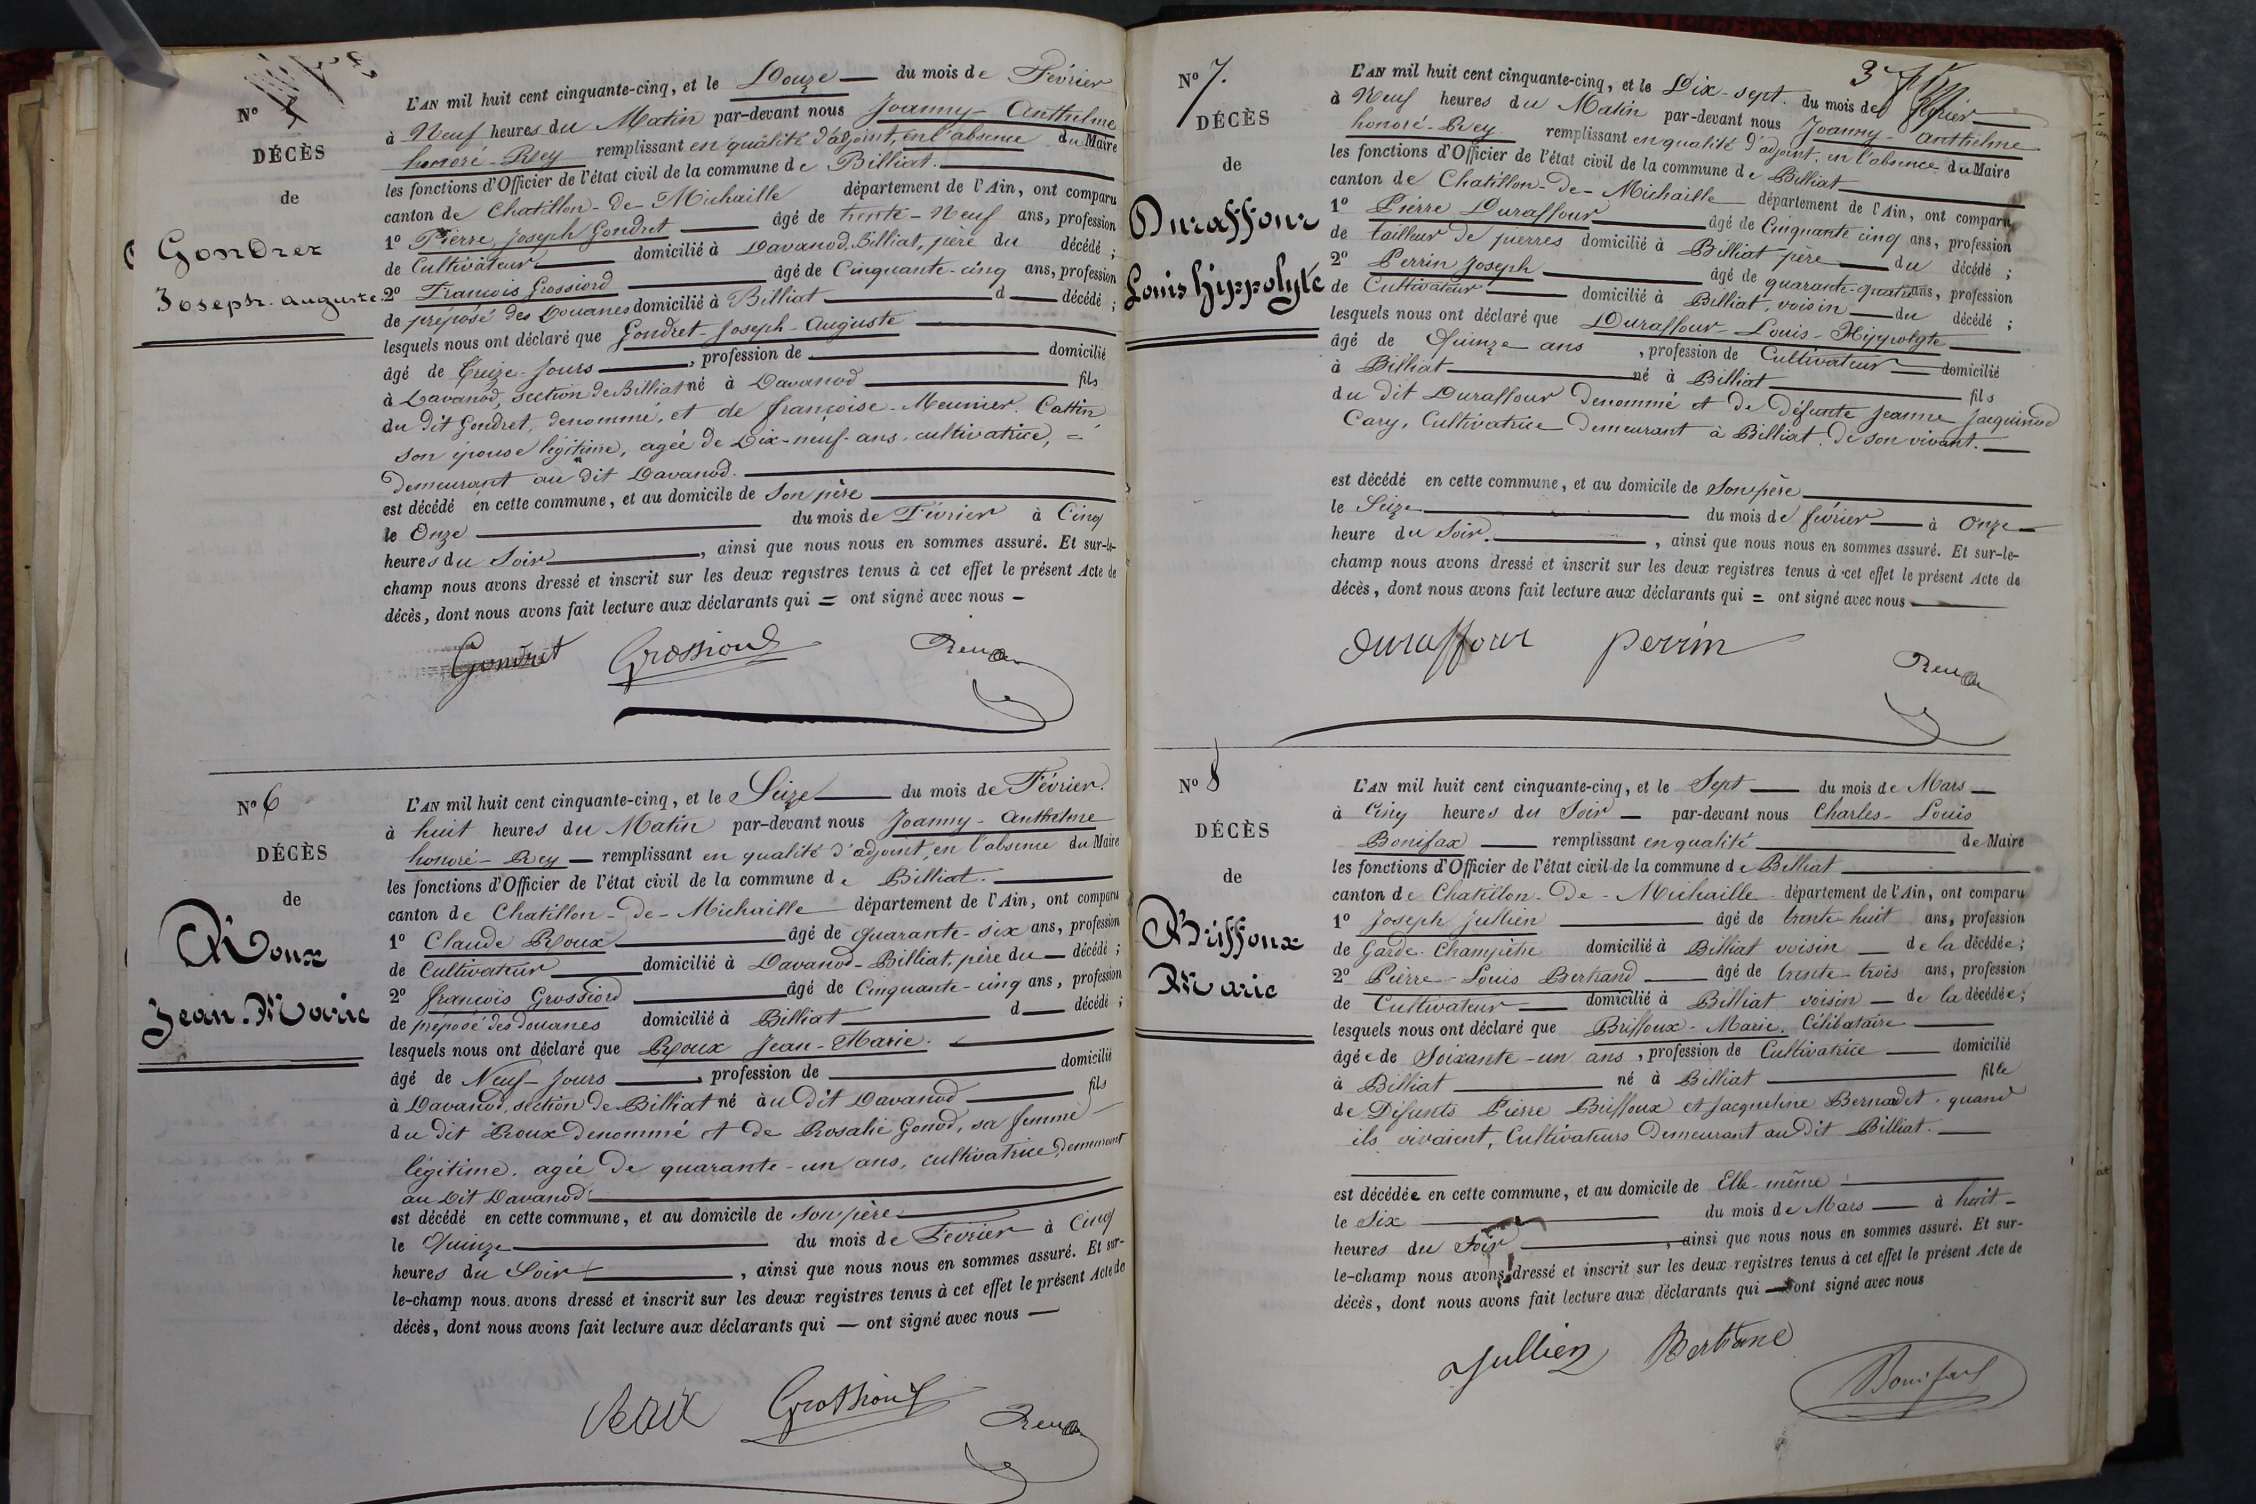 Nº 5
DÉCÈS
de
Gondret
Joseph-Auguste
L'AN mil huit cent cinquante-cinq, et le Douze du mois de Février
à Neuf heures du Matin par-devant nous Joanny-Anthelme
honoré-Rey remplissant en qualité d'adjoint, en l'absence du Maire
les fonctions d'Officier de l'état civil de la commune de Billiat.
canton de Chatillon-de-Michaille département de l'Ain, ont comparu
1º Pierre, Joseph Gondret âgé de trente-Neuf ans, profession
de Cultivateur domicilié à Davanod-Billiat, père du décédé ;
2º François Grossiord âgé de Cinquante-cinq ans, profession
de préposé des Douanes domicilié à Billiat d décédé ;
lesquels nous ont déclaré que Gondret-Joseph-Auguste
âgé de Treize-Jours, profession de domicilié
à Davanod, section de Billiat né à Davanod fils
du dit Gondret, denommé, et de françoise-Meunier Cattin
son épouse légitime, agée de Dix-neuf-ans, cultivatrice, =
demeurant au dit Davanod.
est décédé en cette commune, et au domicile de Son père
le Onze du mois de Février à Cinq
heures du Soir, ainsi que nous nous en sommes assuré. Et sur-le-
champ nous avons dressé et inscrit sur les deux registres tenus à cet effet le présent Acte de
décès, dont nous avons fait lecture aux déclarants qui = ont signé avec nous -
Gondret Grossiord Rey
Nº 6
DÉCÈS
de
Roux
Jean-Marie
L'AN mil huit cent cinquante-cinq, et le Seize du mois de Février.
à huit heures du Matin par-devant nous Joanny-Anthelme
honoré-Rey remplissant en qualité d'adjoint, en l'absence du Maire
les fonctions d'Officier de l'état civil de la commune de Billiat.
canton de Chatillon-de-Michaille département de l'Ain, ont comparu
1º Claude Roux âgé de quarante-six ans, profession
de Cultivateur domicilié à Davanod-Billiat, père du décédé ;
2º françois Grossiord âgé de Cinquante-cinq ans, profession
de préposé des douanes domicilié à Billiat d décédé ;
lesquels nous ont déclaré que Roux Jean-Marie.
âgé de Neuf-Jours, profession de domicilié
à Davanod, section de Billiat né au dit Davanod fils
du dit Roux denommé et de Rosalie Gonod, sa femme
légitime, agée de quarante-un ans, cultivatrice, demeurant
au dit Davanod
est décédé en cette commune, et au domicile de son père
le Quinze du mois de Février à Cinq
heures du Soir, ainsi que nous nous en sommes assuré. Et sur-
le-champ nous avons dressé et inscrit sur les deux registres tenus à cet effet le présent Acte de
décès, dont nous avons fait lecture aux déclarants qui — ont signé avec nous —
Roux Grossiord Rey
3
Nº 7.
DÉCÈS
de
Duraffour
Louis hippolyte
L'AN mil huit cent cinquante-cinq, et le Dix-sept. du mois de février
à Neuf heures du Matin par-devant nous Joanny-Anthelme
honoré-Rey remplissant en qualité d'adjoint, en l'absence du Maire
les fonctions d'Officier de l'état civil de la commune de Billiat
canton de Chatillon-de-Michaille département de l'Ain, ont comparu
1º Pierre Duraffour âgé de Cinquante cinq ans, profession
de tailleur de pierres domicilié à Billiat père du décédé ;
2º Perrin Joseph âgé de quarante-quatre ans, profession
de Cultivateur domicilié à Billiat, voisin du décédé ;
lesquels nous ont déclaré que Duraffour-Louis-Hippolyte
âgé de Quinze ans, profession de Cultivateur domicilié
à Billiat né à Billiat fils
du dit Duraffour denommé et de défunte Jeanne Jacquinod
Cary, Cultivatrice demeurant à Billiat de son vivant.
est décédé en cette commune, et au domicile de Son père
le Seize du mois de février à Onze
heure du Soir., ainsi que nous nous en sommes assuré. Et sur-le-
champ nous avons dressé et inscrit sur les deux registres tenus à cet effet le présent Acte de
décès, dont nous avons fait lecture aux déclarants qui = ont signé avec nous
Duraffour Perrin Rey
Nº 8
DÉCÈS
de
Briffoux
Marie
L'AN mil huit cent cinquante-cinq, et le Sept du mois de Mars
à Cinq heures du Soir par-devant nous Charles-Louis
Bonifax remplissant en qualité de Maire
les fonctions d'Officier de l'état civil de la commune de Billiat
canton de Chatillon-De-Michaille département de l'Ain, ont comparu
1º Joseph Jullien âgé de trente huit ans, profession
de Garde-Champêtre domicilié à Billiat voisin de la décédée ;
2º Pierre-Louis Bertrand âgé de trente-trois ans, profession
de Cultivateur domicilié à Billiat voisin de la décédée ;
lesquels nous ont déclaré que Briffoux-Marie. Célibataire
âgée de Soixante-un ans, profession de Cultivatrice domicilié
à Billiat né à Billiat fille
de Défunts Pierre Briffoux et Jacqueline Bernadet, quand
ils vivaient, Cultivateurs demeurant audit Billiat.
est décédée en cette commune, et au domicile de Elle-même
le Six du mois de Mars à huit
heures du Soir, ainsi que nous nous en sommes assuré. Et sur-
le-champ nous avons dressé et inscrit sur les deux registres tenus à cet effet le présent Acte de
décès, dont nous avons fait lecture aux déclarants qui — ont signé avec nous
Jullien Bertrand
Bonifax